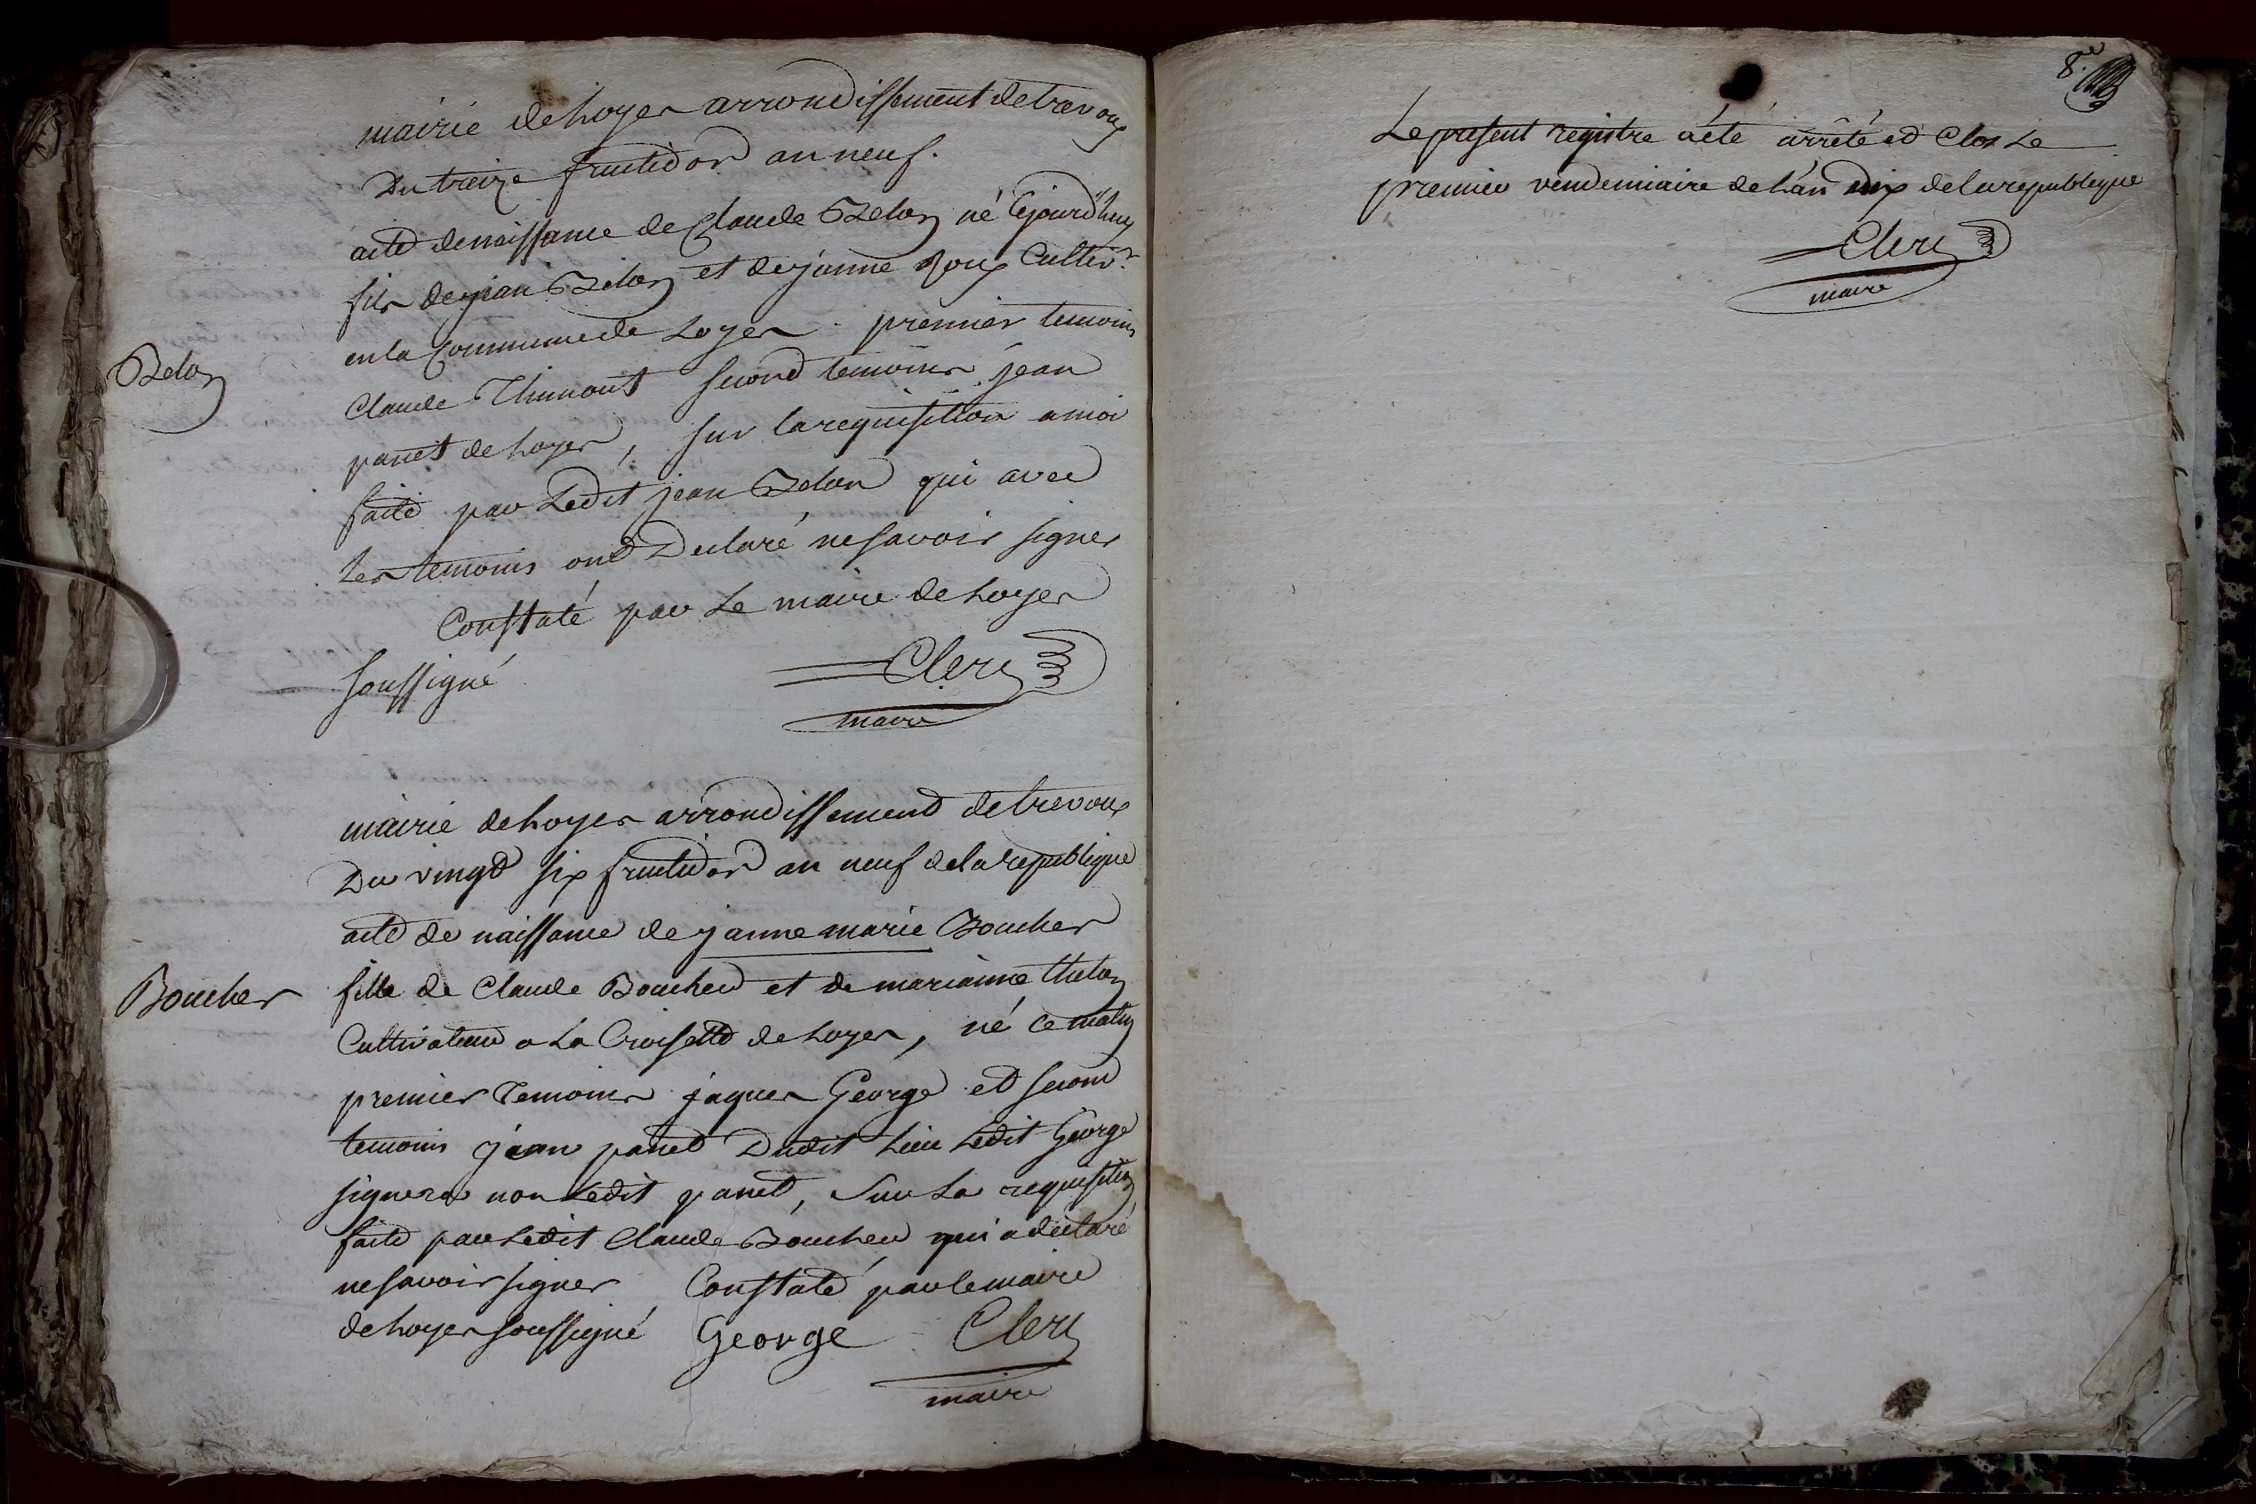 mairie de Loyes arrondissement de trevoux
Du treize fructidor an neuf.
acte de naissance de Claude Belon né cejourd'huy
fils de jean Belon et de janne Roux Cultivr
en la Commune de Loyes . premier temoins
Belon
Claude Thimont second temoins jean
panet de Loyes, sur la requisition a moi
faite par Ledit jean Belon qui avec
Les temoins ont Declaré ne savoir signer
Constaté par Le maire de Loyes
soussigné
Clerc
maire
mairie de Loyes arrondissement de trevoux
Du vingt six fructidor an neuf de la republique
acte de naissance de janne marie Boucher
Boucher
fille de Claude Boucher et de marianne thelon
Cultivateur a La Croisette de Loyes, né ce matin
premier Temoins jaques George et second
temoins jean panet Dudit Lieu Ledit George
signera non Ledit panet, Sur La requisition
faite par Ledit Claude Boucher qui a déclaré
ne savoir signer Constaté par le maire
de Loyes soussigné George Clerc
maire
8.e
Le present registre a été arrêté et Clos Le
premier vendemiaire de L'an dix de la republique
Clerc
maire